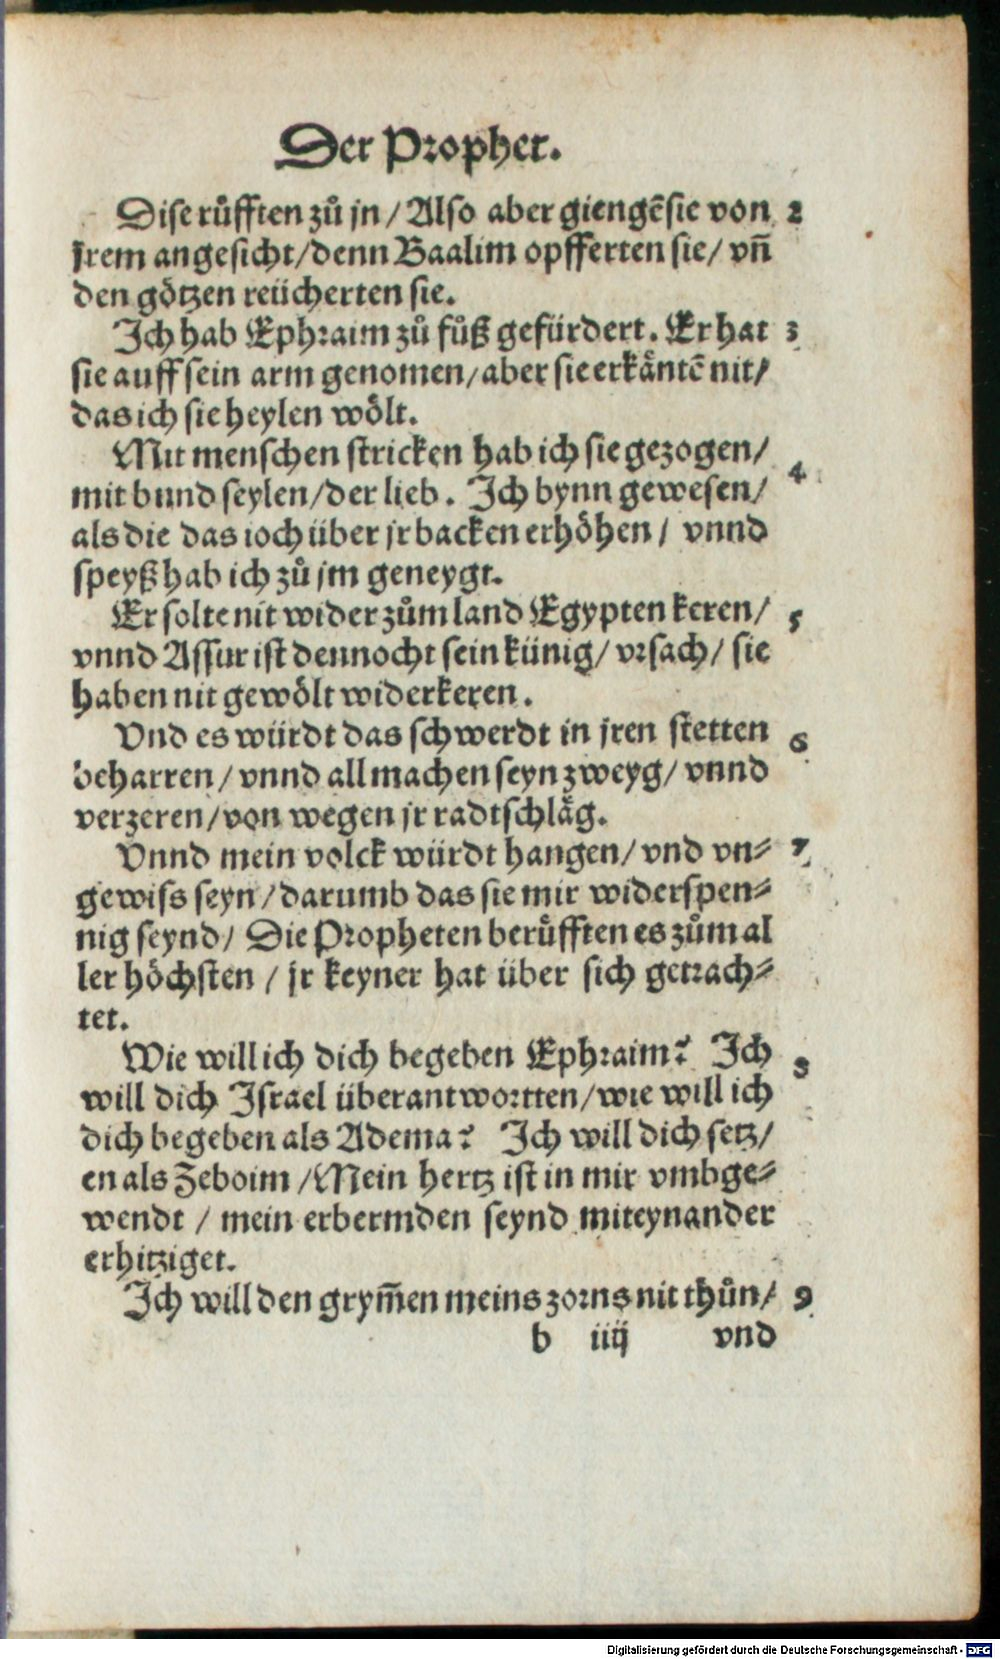 Der Prophet.
Dise růfften zů jn / Also aber giengẽ sie von 2
jrem angesicht / denn Baalim opfferten sie / vñ
den götzen reücherten sie.
Ich hab Ephraim zů fůß gefürdert. Er hat 3
sie auff sein arm genomen / aber sie erkäntẽ nit /
das ich sie heylen wölt.
Mit menschen stricken hab ich sie gezogen /
mit bund seylen / der lieb. Ich bynn gewesen / 4
als die das ioch über jr backen erhöhen / vnnd
speyß hab ich zů jm geneygt.
Er solte nit wider zům land Egypten keren / 5
vnnd Assur ist dennocht sein künig / vrsach / sie
haben nit gewölt widerkeren.
Vnd es würdt das schwerdt in jren stetten 6
beharren / vnnd all machen seyn zweyg / vnnd
verzeren / von wegen jr radtschläg.
Vnnd mein volck würdt hangen / vnd vn- 7
gewiss seyn / darumb das sie mir widerspen-
nig seynd / Die Propheten berůfften es zům al
ler höchsten / jr keyner hat über sich getrach-
tet.
Wie will ich dich begeben Ephraim? Ich 8
will dich Israel überantwortten / wie will ich
dich begeben als Adema? Ich will dich setz /
en als Zeboim / Mein hertz ist in mir vmbge-
wendt / mein erbermden seynd miteynander
erhitziget.
Ich will den grym̃en meins zorns nit thůn / 9
b iiij vnd
Digitalisierung gefördert durch die Deutsche Forschungsgemeinschaft - DFG